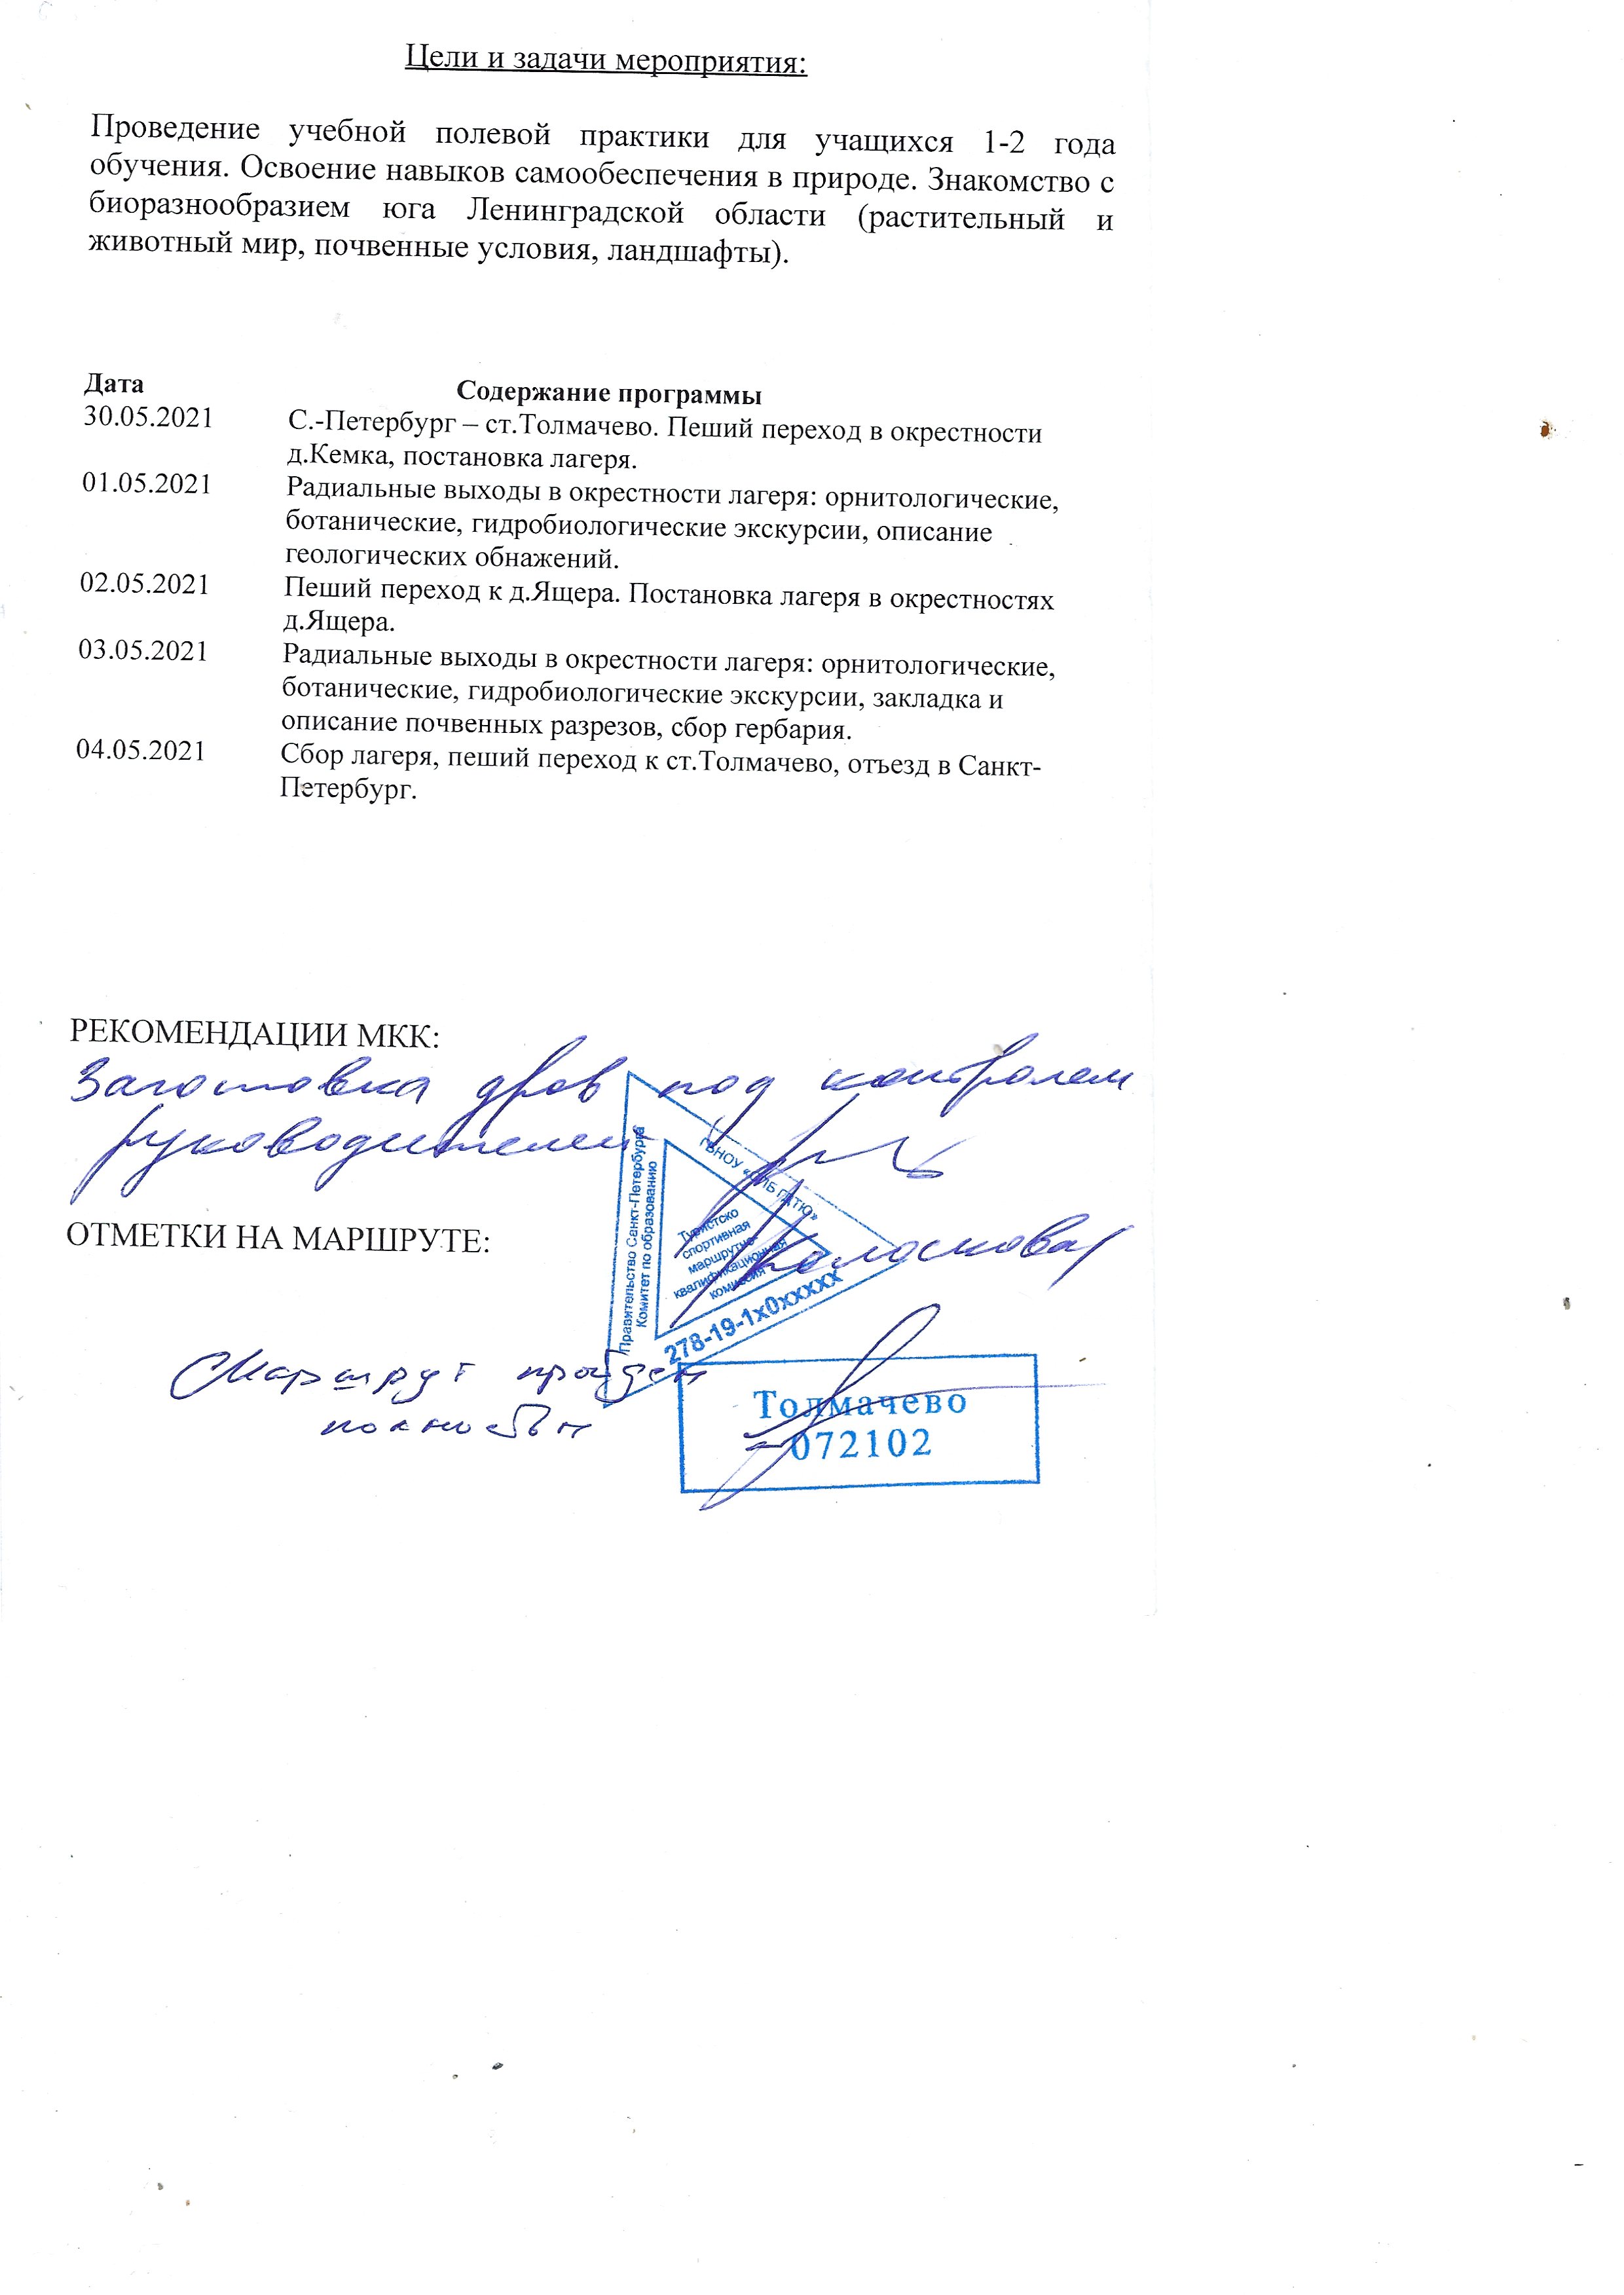 Цели и задачи мероприятия:
Проведение учебной полевой практики для учащихся 1-2 года
обучения. Освоение навыков самообеспечения в природе. Знакомство с
биоразнообразием юга Ленинградской области (растительный и
животный мир, почвенные условия, ландшафты).
Дата Содержание программы
30.05.2021 С.-Петербург – ст.Толмачево. Пеший переход в окрестности
д.Кемка, постановка лагеря.
01.05.2021 Радиальные выходы в окрестности лагеря: орнитологические,
ботанические, гидробиологические экскурсии, описание
геологических обнажений.
02.05.2021 Пеший переход к д.Ящера. Постановка лагеря в окрестностях
д.Ящера.
03.05.2021 Радиальные выходы в окрестности лагеря: орнитологические,
ботанические, гидробиологические экскурсии, закладка и
описание почвенных разрезов, сбор гербария.
04.05.2021 Сбор лагеря, пеший переход к ст.Толмачево, отъезд в Санкт-
Петербург.
РЕКОМЕНДАЦИИ МКК:
Заготовка дров под контролем
руководителей
Правительство Санкт-Петербурга
Комитет по образованию
ГБНОУ «СПБ ГДТЮ»
Туристско
спортивная
маршрутно
квалификационная
комиссия
278-19-1x0xxxxx
ОТМЕТКИ НА МАРШРУТЕ:
Колоскова
Маршрут пройден
полностью
Толмачево
072102